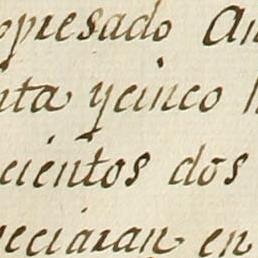 opresado An
nta ycinco
cientos dos
neciaran en